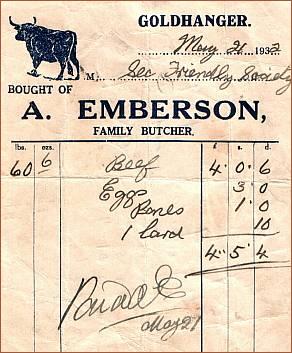 GOLDHANGER.
May 21 1932
M Sec Friendly Society
BOUGHT OF
A. EMBERSON,
FAMILY BUTCHER.
lbs. ozs. £ s. d.
60 6 Beef 4 0 6
Eggs 3 0
Bones 1 0
1 lard 10
4 5 4
Paid
May 21